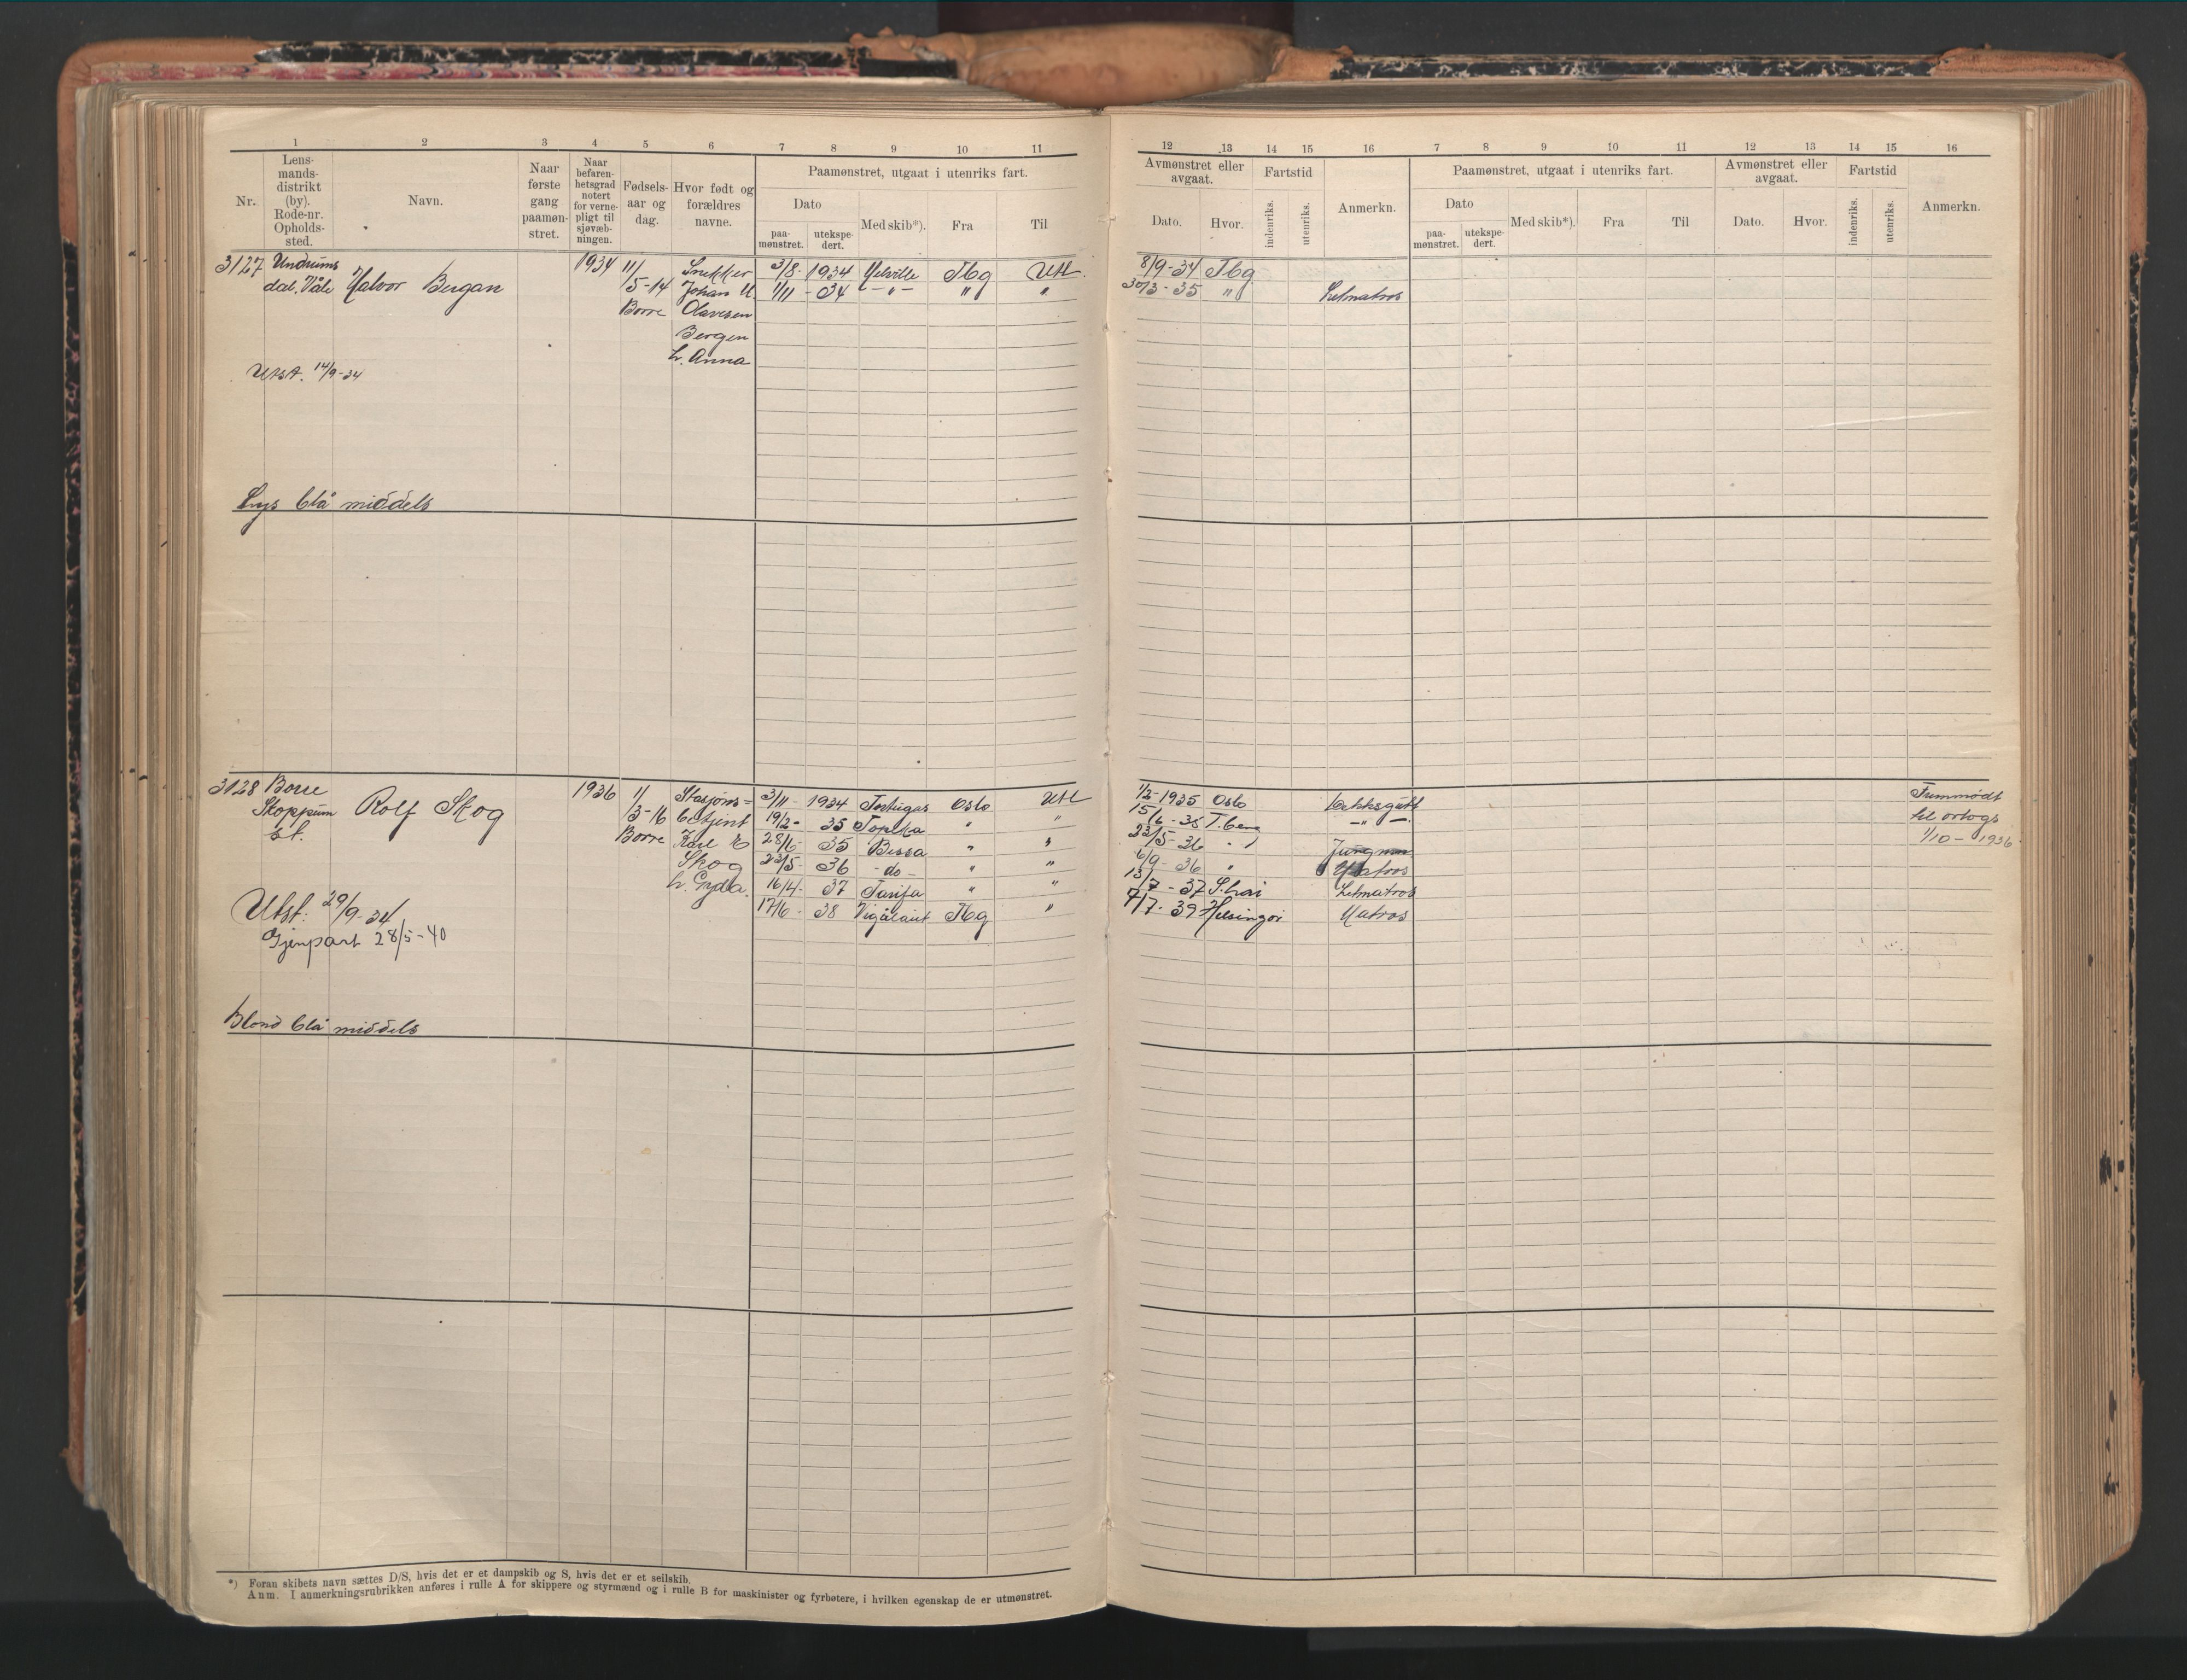 1 2 3 4 5 6 7 8 9 10 11
Nr.
Lens-
mands-
distrikt
(by).
Rode-nr.
Opholds-
sted.
Navn.
Naar
første
gang
paamøn-
stret.
Naar
befaren-
hetsgrad
notert
for verne-
pligt til
sjøvæb-
ningen.
Fødsels-
aar og
dag.
Hvor født og
forældres
navne.
Paamønstret, utgaat i utenriks fart.
Dato
paa-
mønstret.
utekspe-
dert.
Med skib*).
Fra
Til
3127 Undrums
dal. Våle Halvor Bergan
1934 11/
5-14
Borre
Snekker
Johan M
Olavesen
Bergen
h. Anna
3/8 - 1934 Melville Tbg Utl.
1/11 - 34 - " - " "
Utst. 14/9-34
Lys blå middels
3128 Borre
Skoppum
st.
Rolf Skog
1936 11/
3-16
Borre
Stasjons=
betjent
Karl E
Skog
h. Gyda.
3/11 - 1934 Tortugas Oslo Utl
19/2 - 35 Topeka " "
28/6 - 35 Bessa " "
23/5 - 36 - do - " "
16/4 - 37 Tarifa " "
17/6 - 38 Tbg "
Utst: 29/9-34
Gjenpart 28/5-40
Blond blå middels
*) Foran skibets navn sættes D/S, hvis det er et dampskib og S, hvis det er et seilskib.
Anm. I anmerkningsrubrikken anføres i rulle A for skippere og styrmænd og i rulle B for maskinister og fyrbøtere, i hvilken egenskap de er utmønstret.
12 13 14 15 16 7 8 9 10 11 12 13 14 15 16
Avmønstret eller
avgaat.
Dato.
Hvor.
Fartstid
indenriks.
utenriks.
Anmerkn.
Paamønstret, utgaat i utenriks fart.
Dato
paa-
mønstret.
utekspe-
dert.
Med skib*).
Fra
Til
Avmønstret eller
avgaat.
Dato.
Hvor.
Fartstid
indenriks.
utenriks.
Anmerkn.
8/9 - 34 Tbg
30/3 - 35 " Letmatros
1/2 - 1935 Oslo Dekksgutt
15/6 - 35 T.berg - " -
23/5 - 36 " Jungmann
6/9 - 36 " Matros
13/7 - 37 S.hai Letmatros
7/7 - 39 Helsingør Matros
Fremmødt
til orlogs
1/10 - 1936.